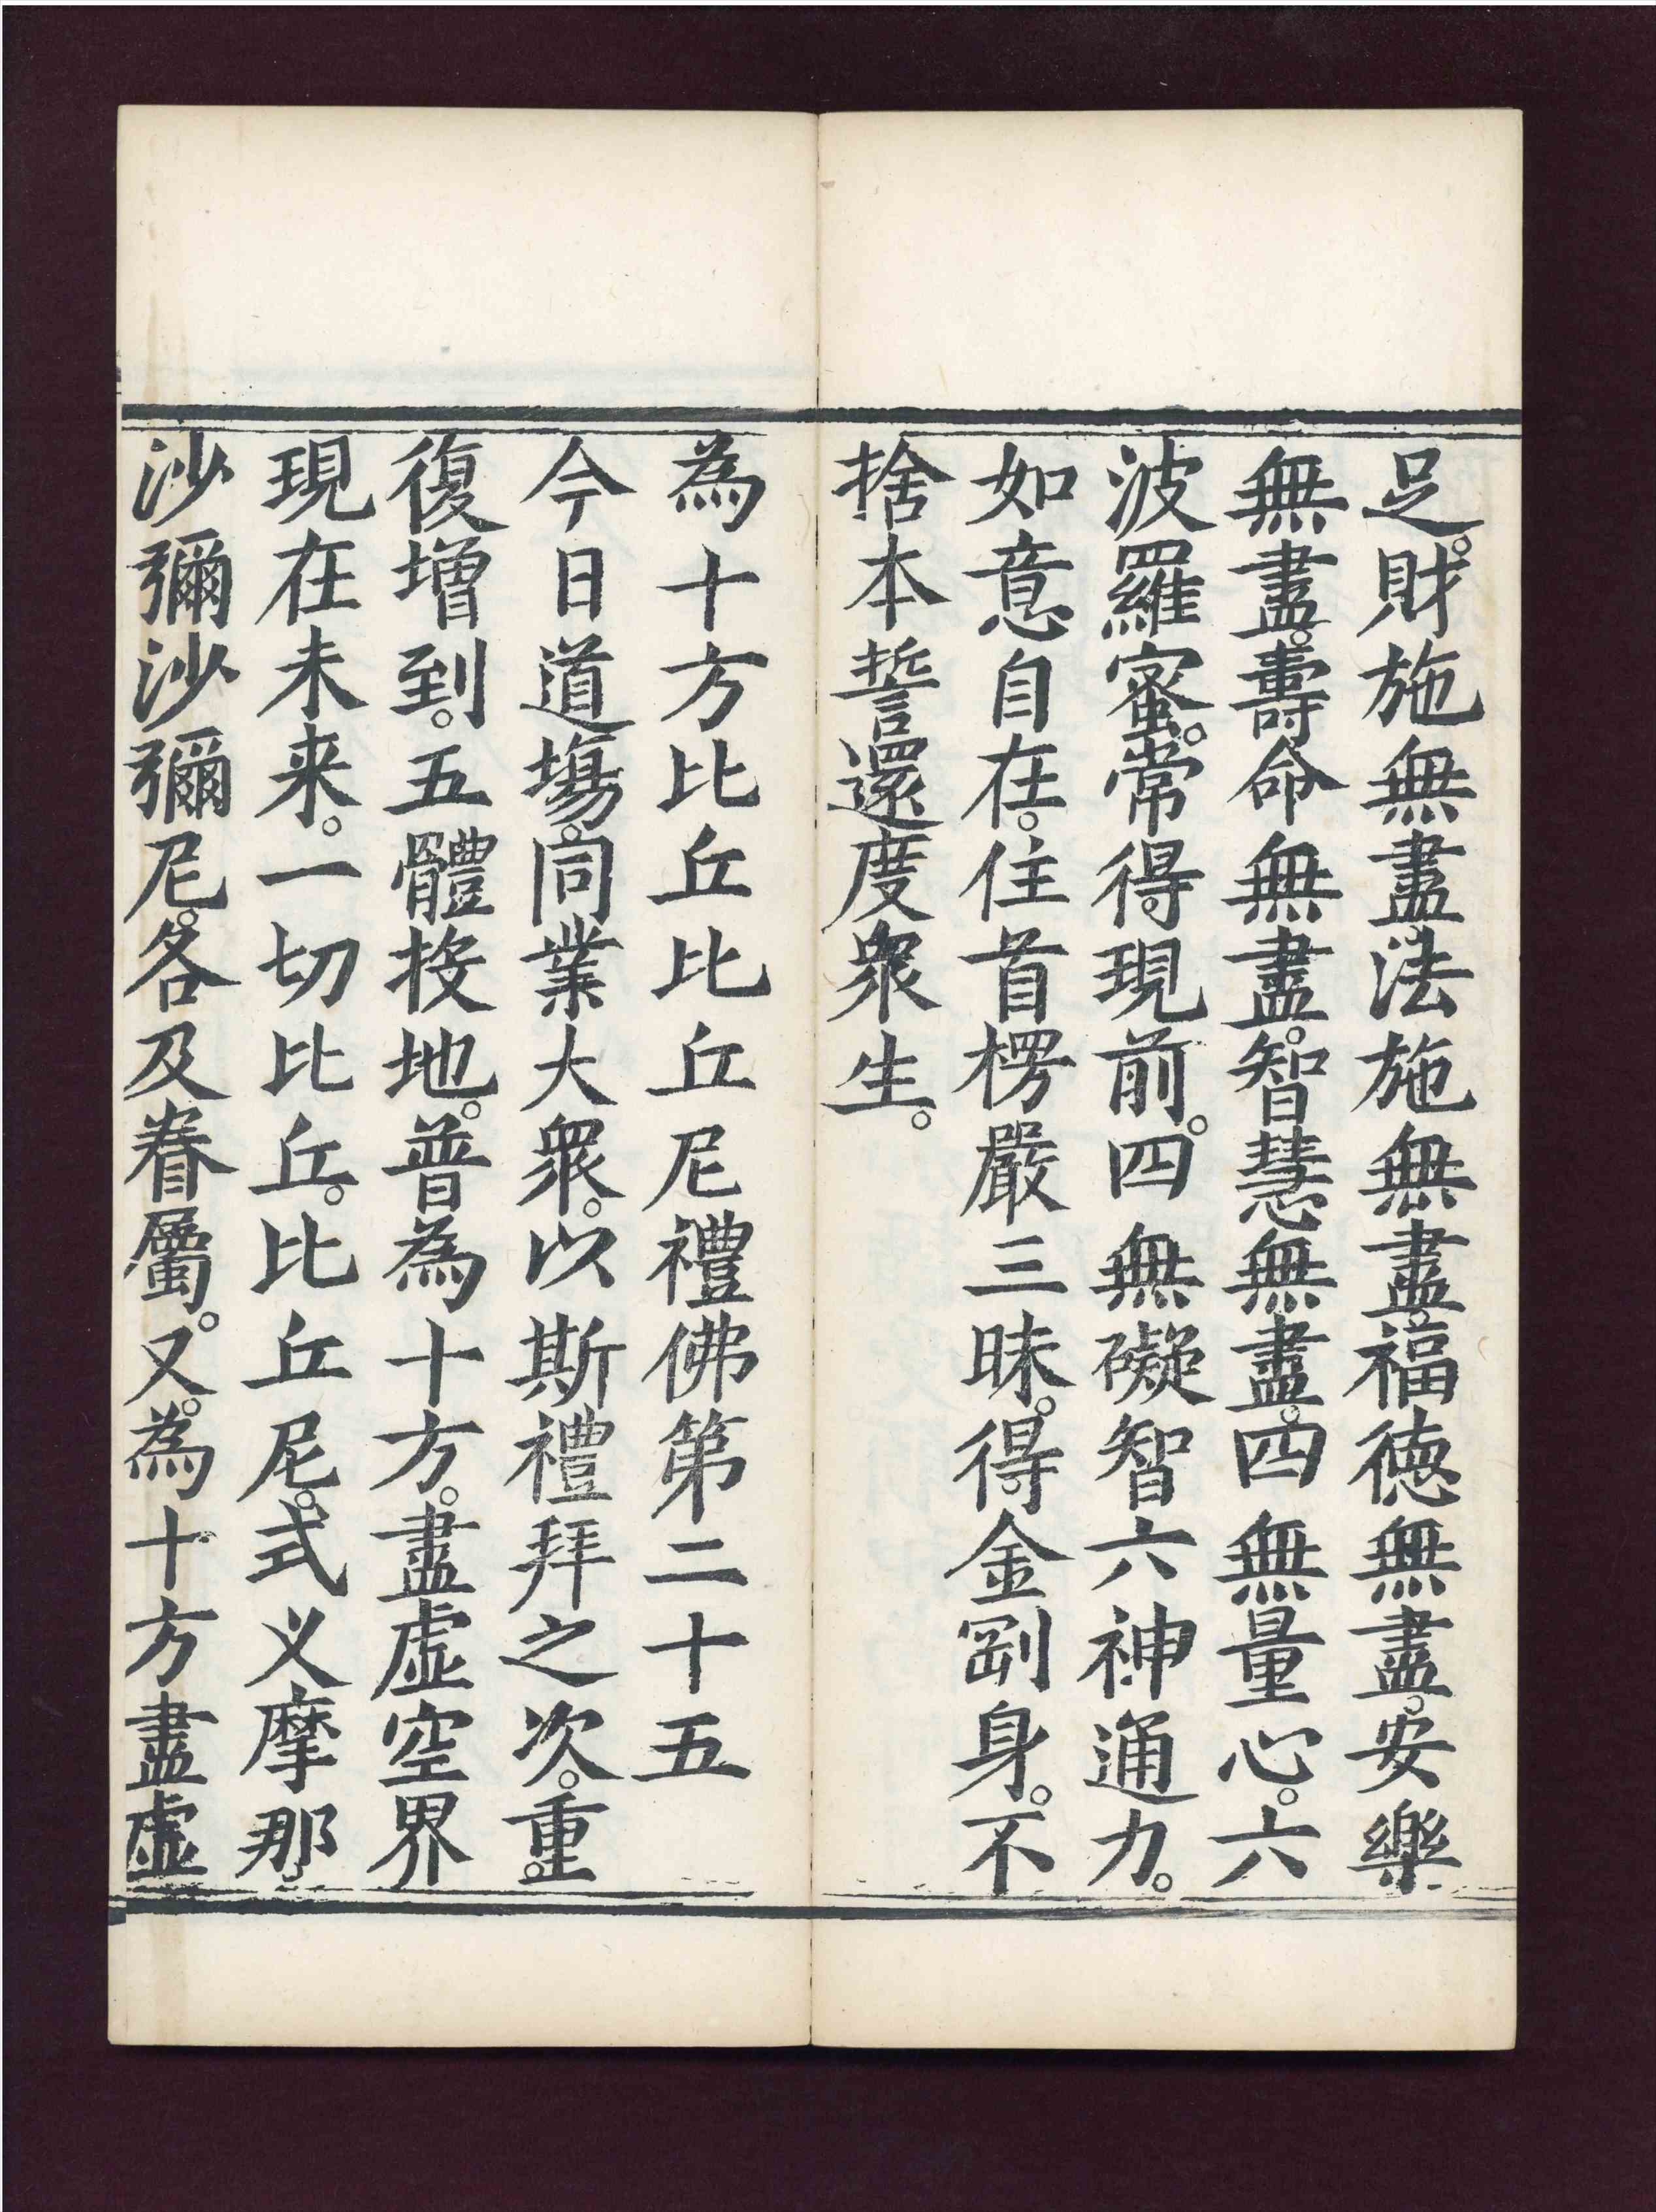 足。財施無盡。法施無盡。福德無盡。安樂
無盡。壽命無盡。智慧無盡。四無量心。六
波羅蜜。常得現前。四無礙智六神通力。
如意自在。住首楞嚴三昧。得金剛身。不
捨本誓還度衆生。
為十方比丘比丘尼禮佛第二十五
今日道場。同業大衆。以斯禮拜之次。重。
復增到。五體投地。普為十方。盡虛空界
現在未来。一切比丘。比丘尼。式义摩那。
沙彌沙彌尼。各及眷屬。又。為十方盡虛